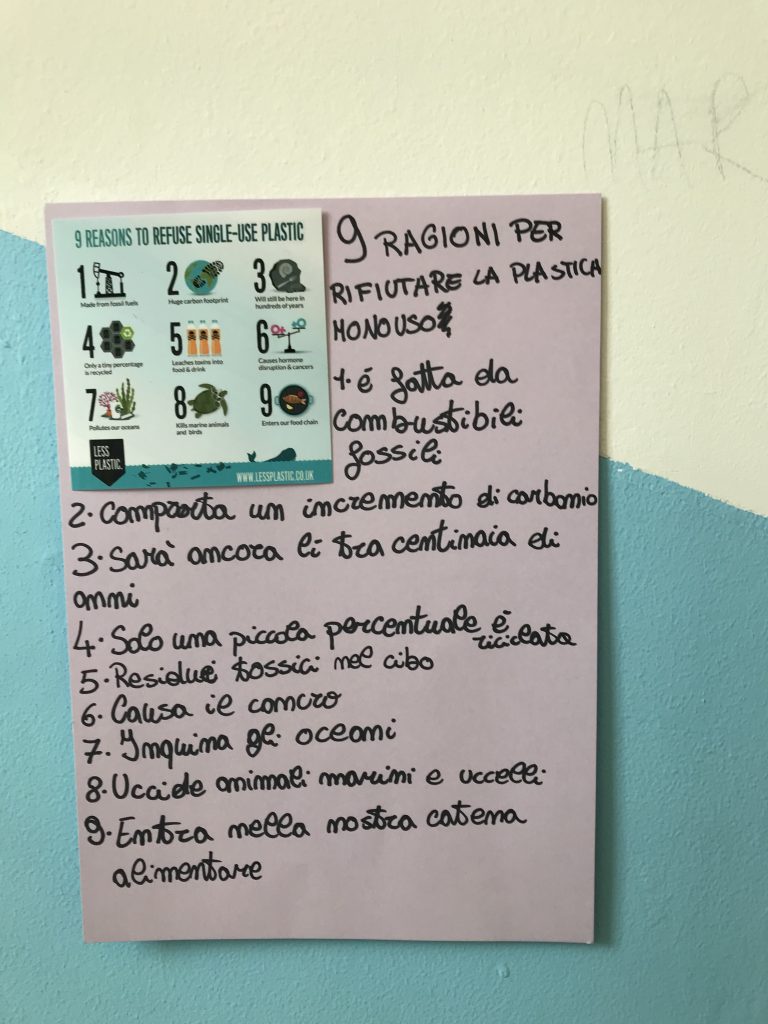 MAR
9 REASONS TO REFUSE SINGLE-USE PLASTIC
1
Made from fossil fuels
2
Huge carbon footprint
3
Will still be here in
hundreds of years
4
Only a tiny percentage
is recycled
5
Leaches toxins into
food & drink
6
Causes hormone
disruption & cancers
7
Pollutes our oceans
8
Kills marine animals
and birds
9
Enters our food chain
LESS
PLASTIC.
WWW.LESSPLASTIC.CO.UK
9 RAGIONI PER
RIFIUTARE LA PLASTICA
MONOUSO
1. é fatta da
combustibili
fossili
2. Comporta un incremento di carbonio
3. Sarà ancora lì tra centinaia di
anni
4. Solo una piccola percentuale é
riciclata
5. Residui tossici nel cibo
6. Causa il cancro
7. Inquina gli oceani
8. Uccide animali marini e uccelli
9. Entra nella nostra catena
alimentare